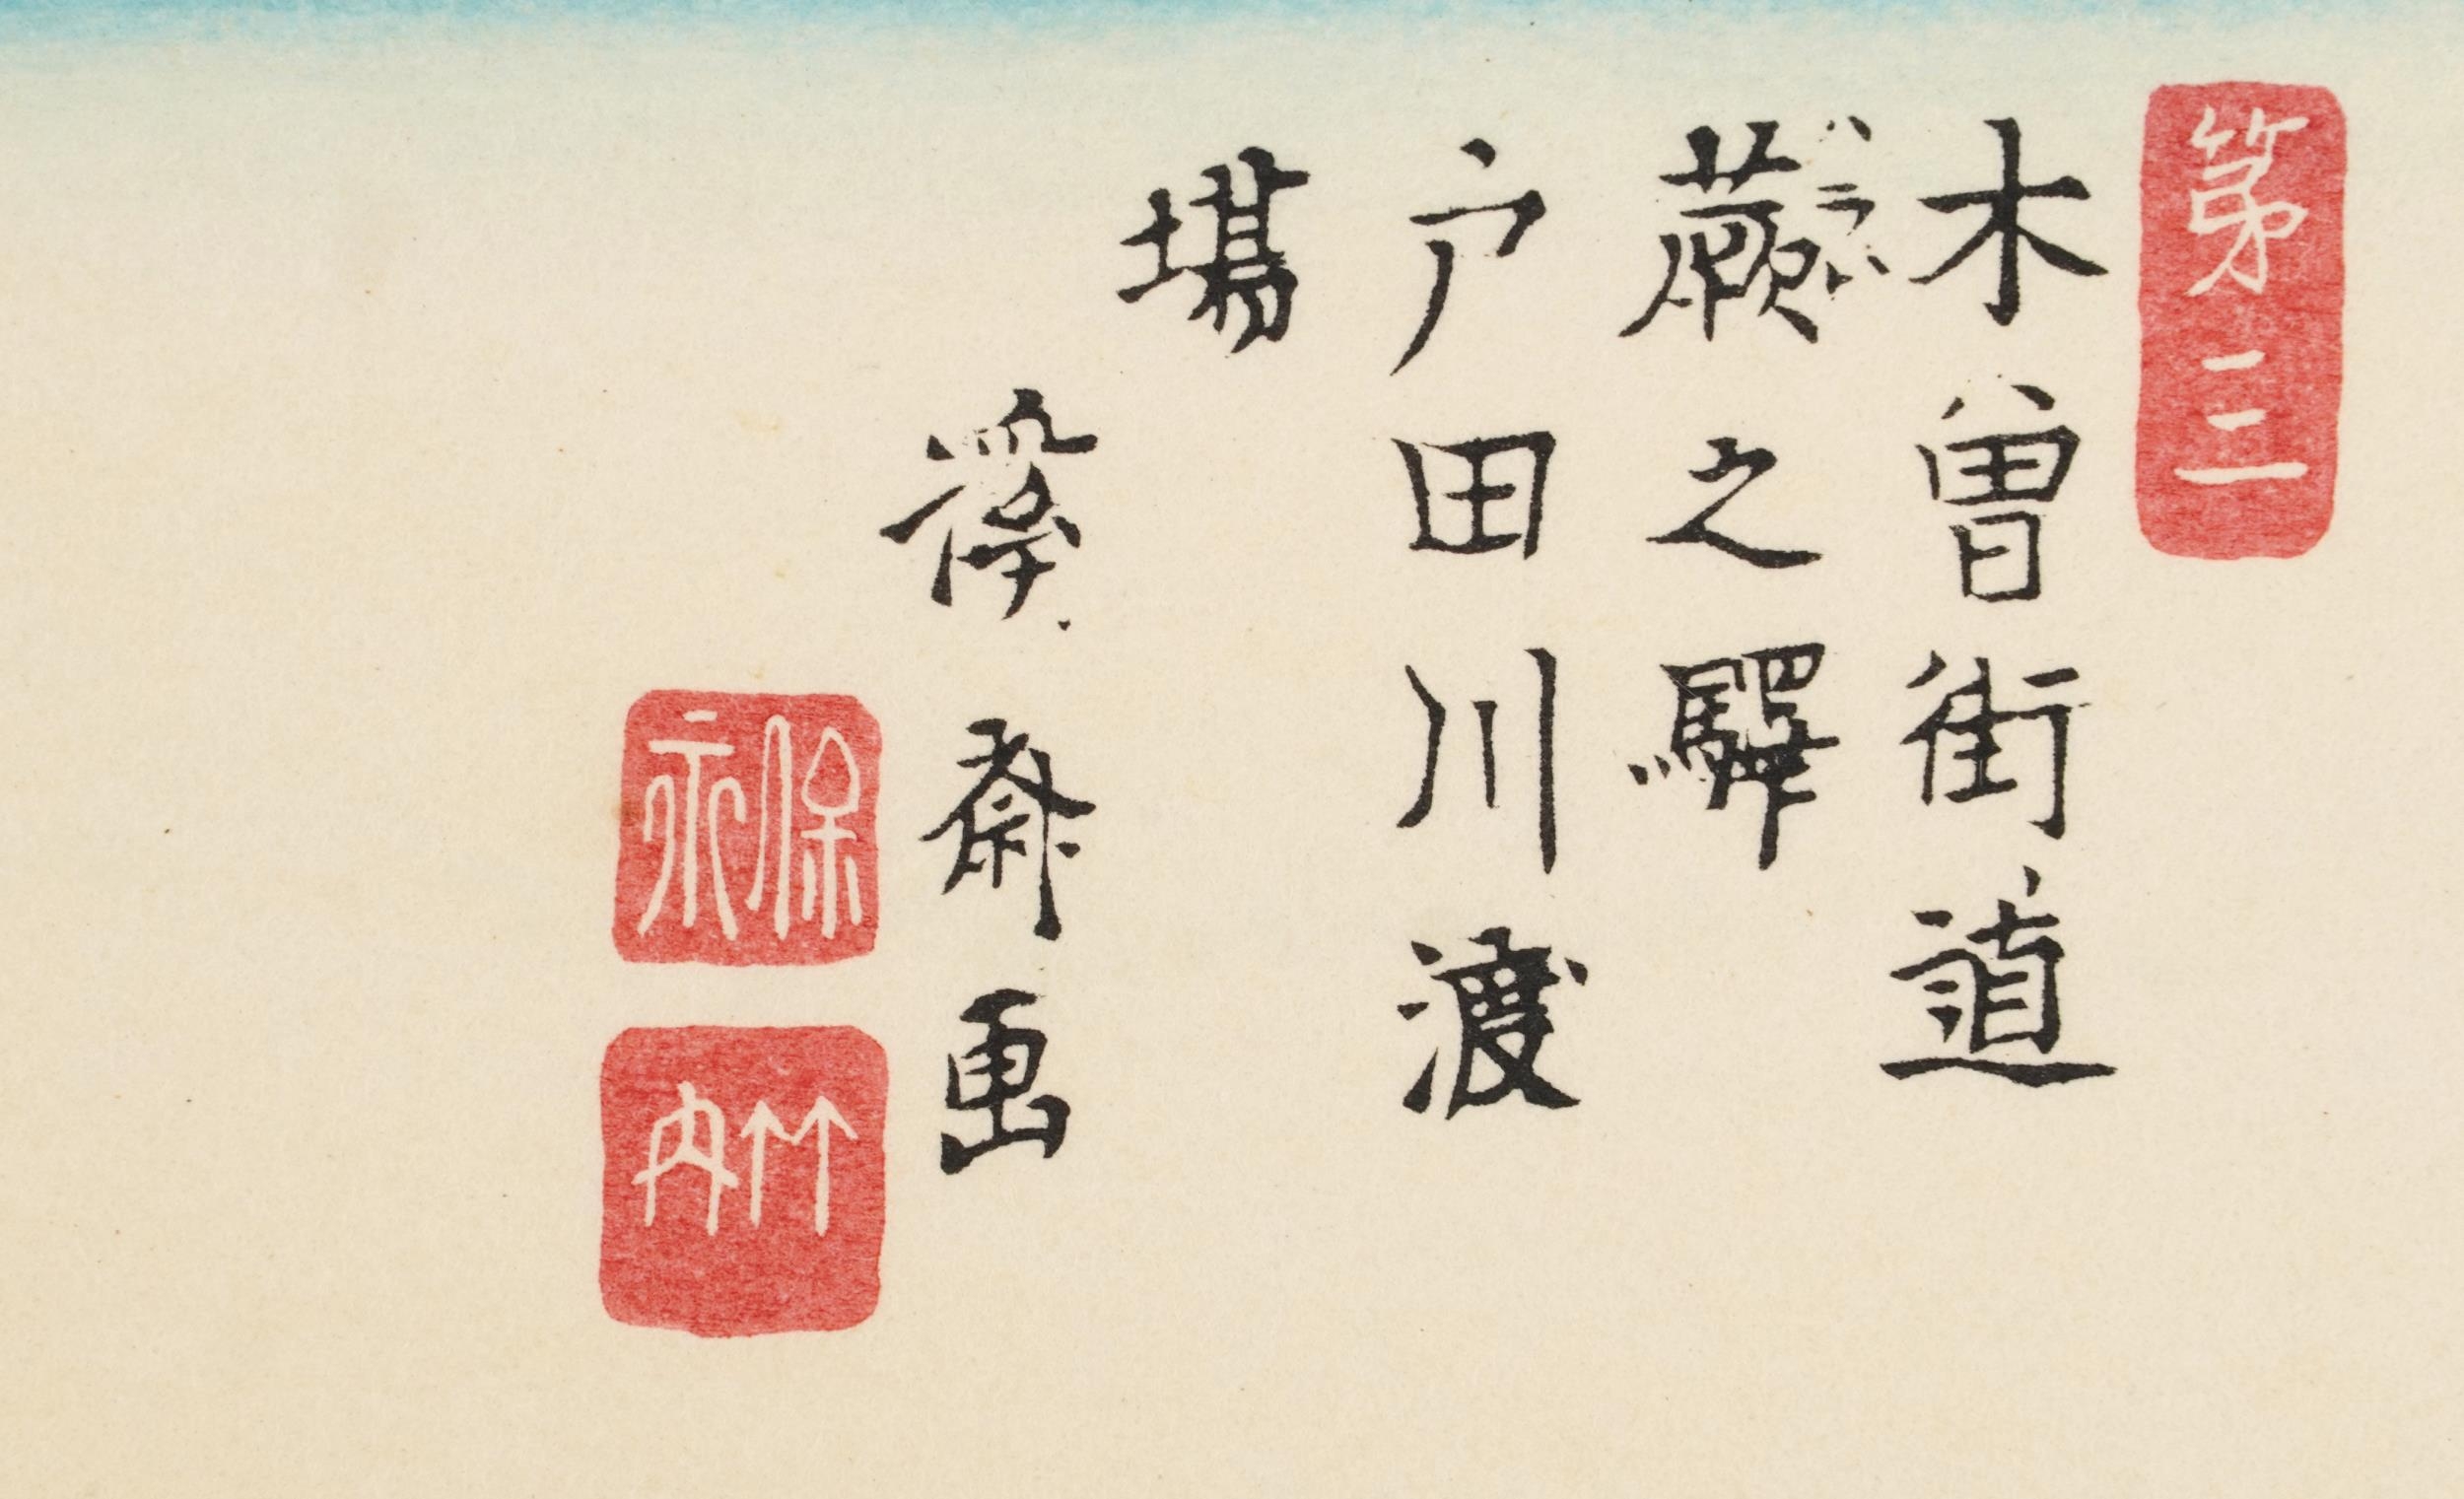 第三
木曽街道
蕨之驛
ワラビ
戸田川渡
場
渓斎画
保永
竹内